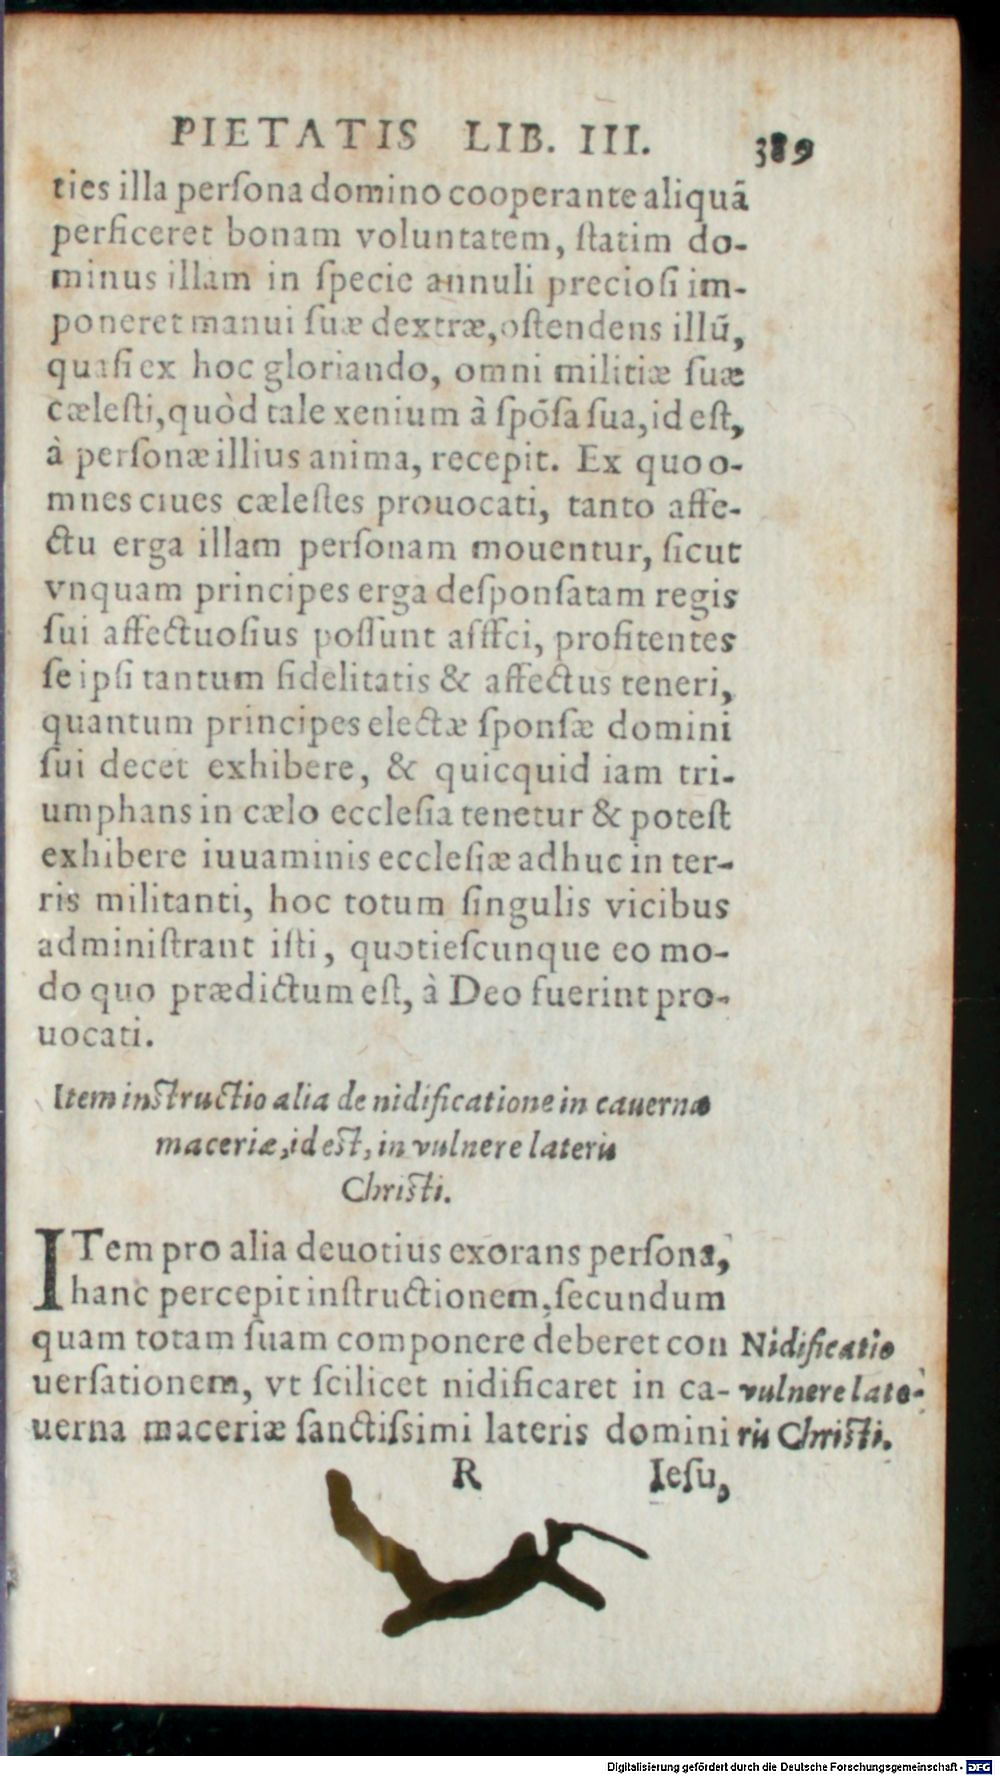 PIETATIS LIB. III. 389
ties illa perſona domino cooperante aliquã
perficeret bonam voluntatem, ſtatim do-
minus illam in ſpecie annuli precioſi im-
poneret manui ſuæ dextræ, oſtendens illũ,
quaſi ex hoc gloriando, omni militiæ ſuæ
cæleſti, quòd tale xenium à ſpõſa ſua, id eſt,
à perſonæ illius anima, recepit. Ex quo o-
mnes ciues cæleſtes prouocati, tanto affe-
ctu erga illam perſonam mouentur, ſicut
vnquam principes erga deſponſatam regis
ſui affectuoſius poſſunt afffci, profitentes
ſe ipſi tantum fidelitatis & affectus teneri,
quantum principes electæ ſponſæ domini
ſui decet exhibere, & quicquid iam tri-
umphans in cælo eccleſia tenetur & poteſt
exhibere iuuaminis eccleſiæ adhuc in ter-
ris militanti, hoc totum ſingulis vicibus
adminiſtrant iſti, quotieſcunque eo mo-
do quo prædictum eſt, à Deo fuerint pro-
uocati.
Item inſtructio alia de nidificatione in cauerna
maceriæ, id eſt, in vulnere lateris
Chriſti.
ITem pro alia deuotius exorans perſona,
hanc percepit inſtructionem, ſecundum
quam totam ſuam componere deberet con
uerſationem, vt ſcilicet nidificaret in ca-
uerna maceriæ ſanctiſsimi lateris domini
Nidificatio
vulnere late-
ris Chriſti.
R Ieſu,
Digitalisierung gefördert durch die Deutsche Forschungsgemeinschaft - DFG